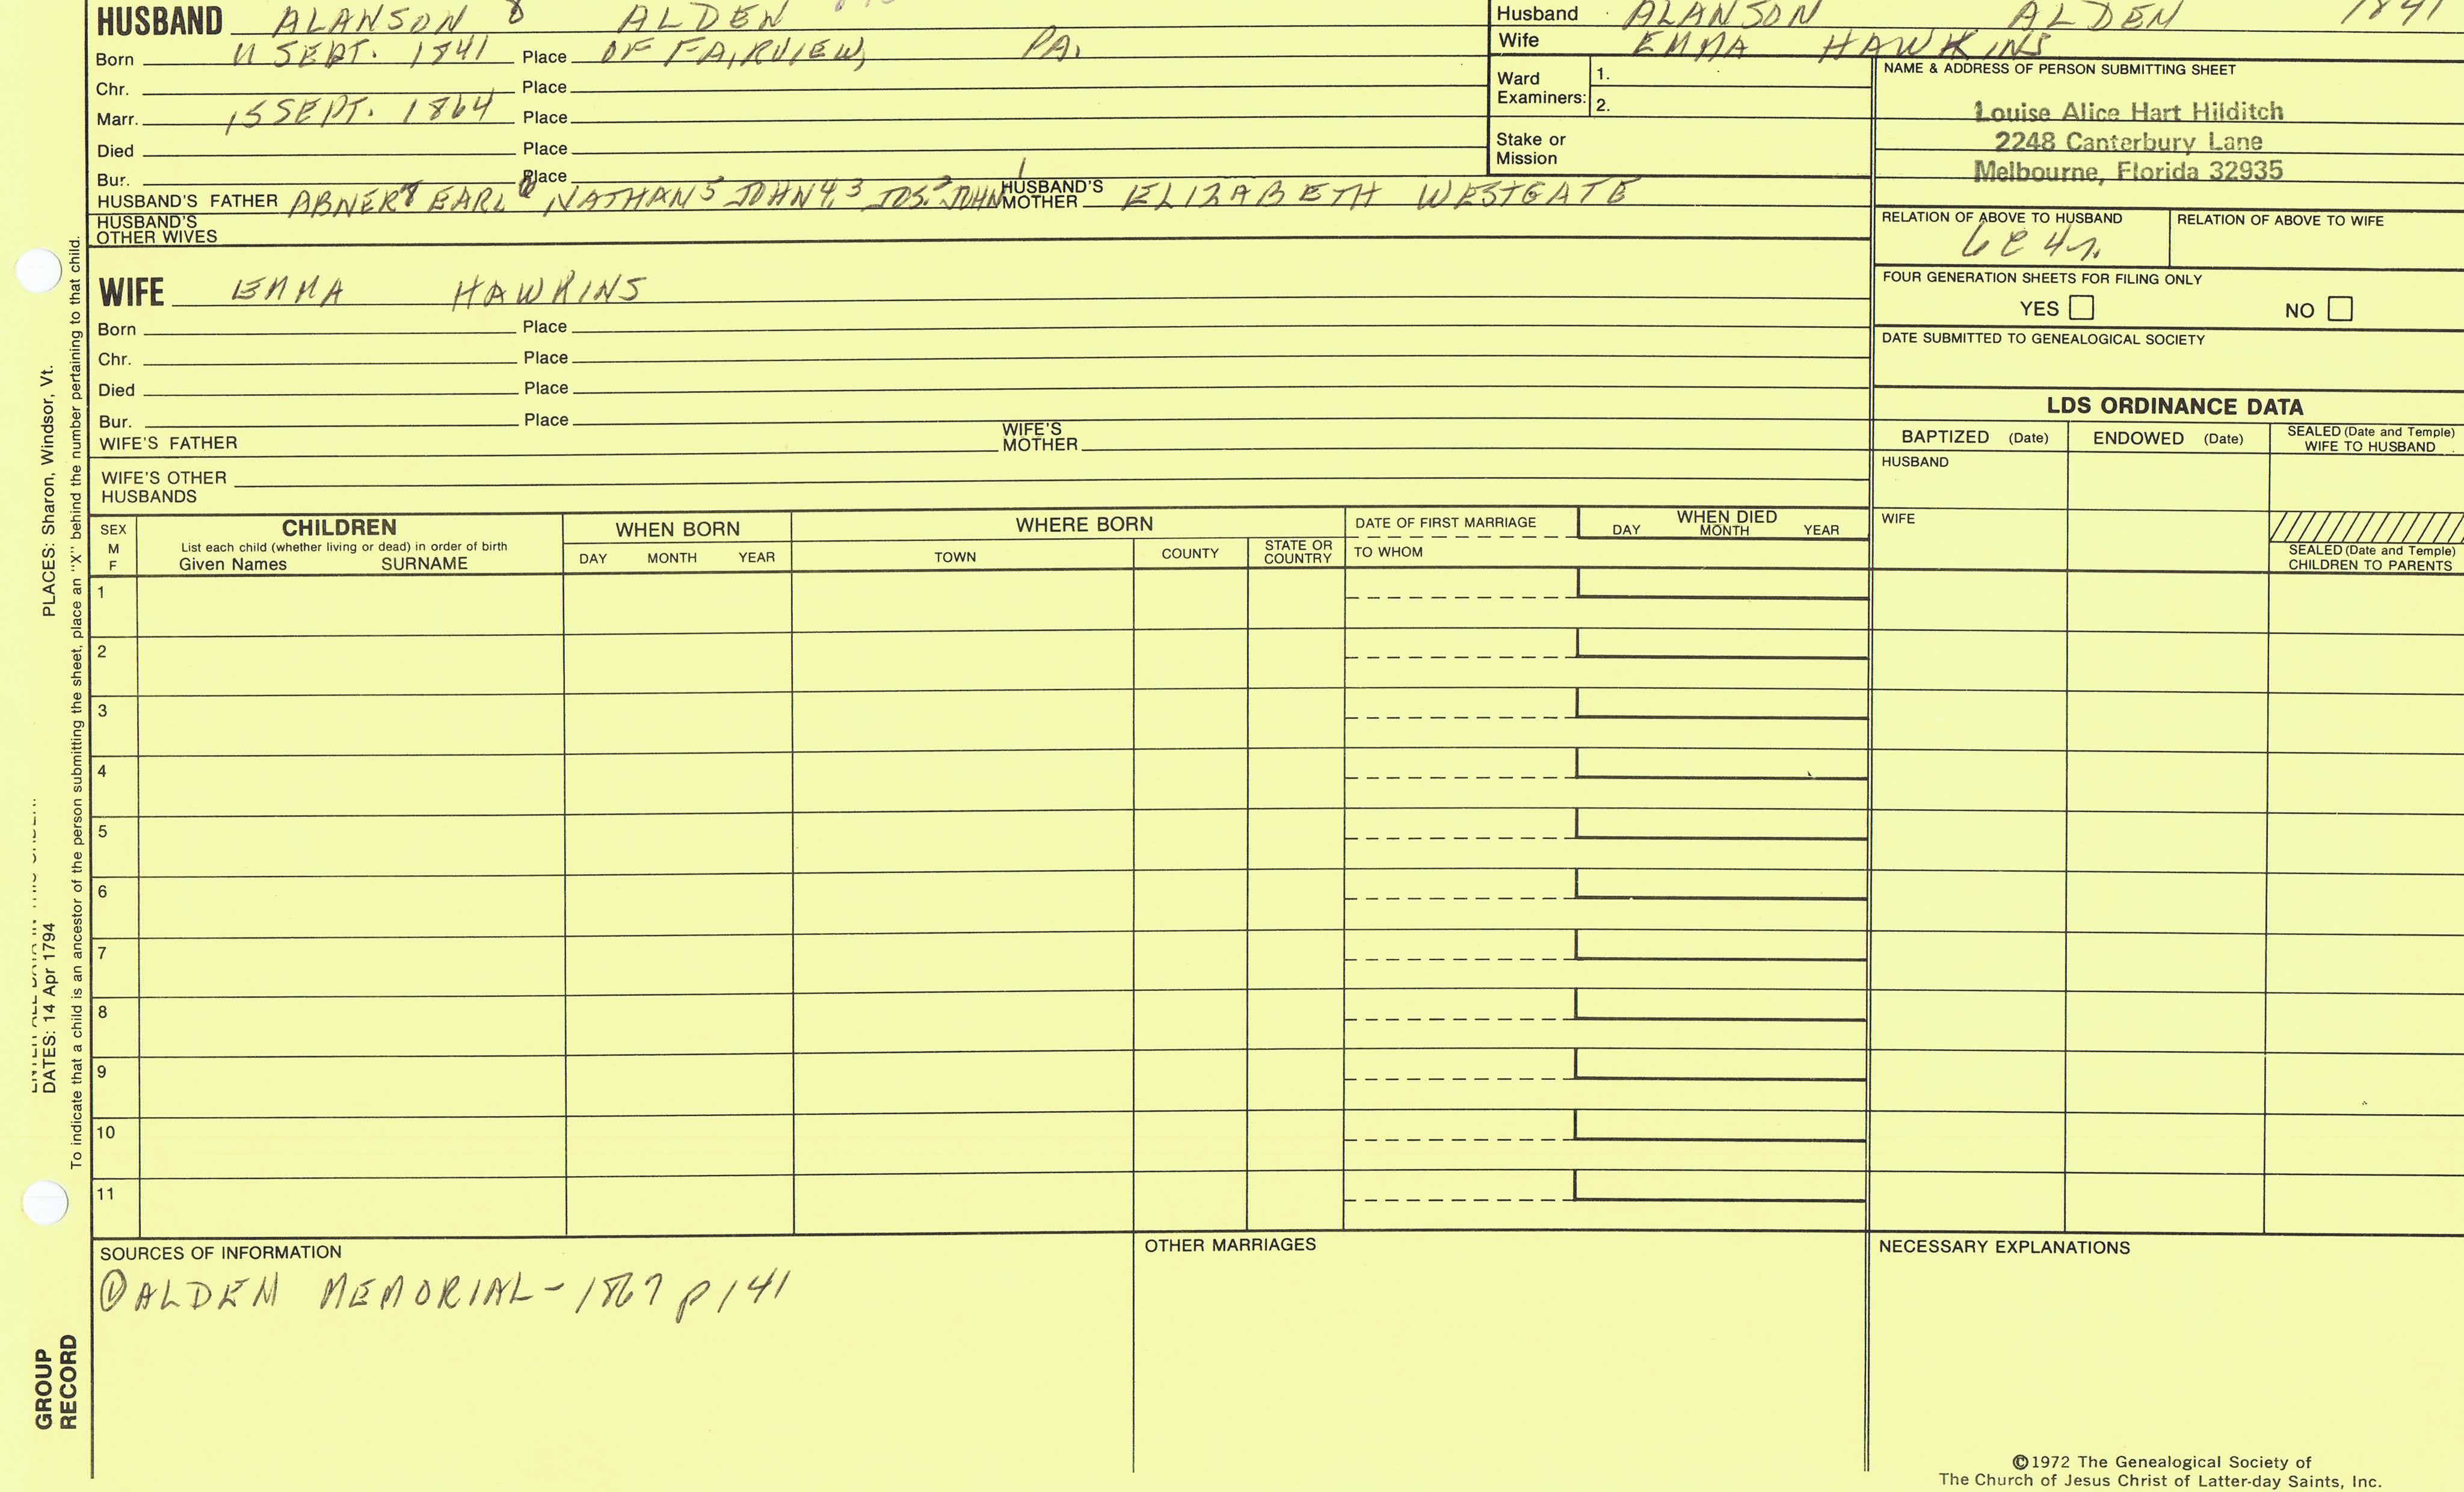 HUSBAND ALANSON 8 ALDEN
Born 11 SEPT. 1841 Place OF FAIRVIEW, PA.
Chr. Place
Marr. 15 SEPT. 1864 Place
Died Place
Bur. Place
HUSBAND'S FATHER ABNER7 EARL6 NATHAN5 JOHN4,3 JOS.2 JOHN1 HUSBAND'S MOTHER ELIZABETH WESTGATE
HUSBAND'S OTHER WIVES
WIFE EMMA HAWKINS
Born Place
Chr. Place
Died Place
Bur. Place
WIFE'S FATHER WIFE'S MOTHER
WIFE'S OTHER HUSBANDS
Husband ALANSON ALDEN 1841
Wife EMMA HAWKINS
Ward Examiners: 1.
2.
Stake or Mission
NAME & ADDRESS OF PERSON SUBMITTING SHEET
Louise Alice Hart Hilditch
2248 Canterbury Lane
Melbourne, Florida 32935
RELATION OF ABOVE TO HUSBAND RELATION OF ABOVE TO WIFE
6C 4r.
FOUR GENERATION SHEETS FOR FILING ONLY
YES NO
DATE SUBMITTED TO GENEALOGICAL SOCIETY
LDS ORDINANCE DATA
BAPTIZED (Date) ENDOWED (Date) SEALED (Date and Temple) WIFE TO HUSBAND
HUSBAND
WIFE
SEALED (Date and Temple) CHILDREN TO PARENTS
SEX M F
CHILDREN
List each child (whether living or dead) in order of birth
Given Names SURNAME
WHEN BORN
DAY MONTH YEAR
WHERE BORN
TOWN COUNTY STATE OR COUNTRY
DATE OF FIRST MARRIAGE
TO WHOM
WHEN DIED
DAY MONTH YEAR
1
2
3
4
5
6
7
8
9
10
11
SOURCES OF INFORMATION
① ALDEN MEMORIAL - 1867 p 141
OTHER MARRIAGES
NECESSARY EXPLANATIONS
©1972 The Genealogical Society of
The Church of Jesus Christ of Latter-day Saints, Inc.
PLACES: Sharon, Windsor, Vt.
DATES: 14 Apr 1794
To indicate that a child is an ancestor of the person submitting the sheet, place an "X" behind the number pertaining to that child.
GROUP
RECORD